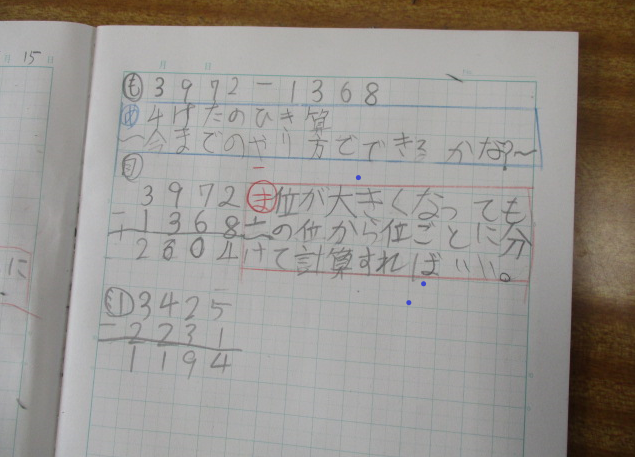 15
も 3972-1368
め 4けたのひき算
〜今までのやり方でできるかな?〜
3972
-1368
2604
ま 位が大きくなっても
一の位から位ごとに分
けて計算すればいい。
① 3425
-2231
1194
に